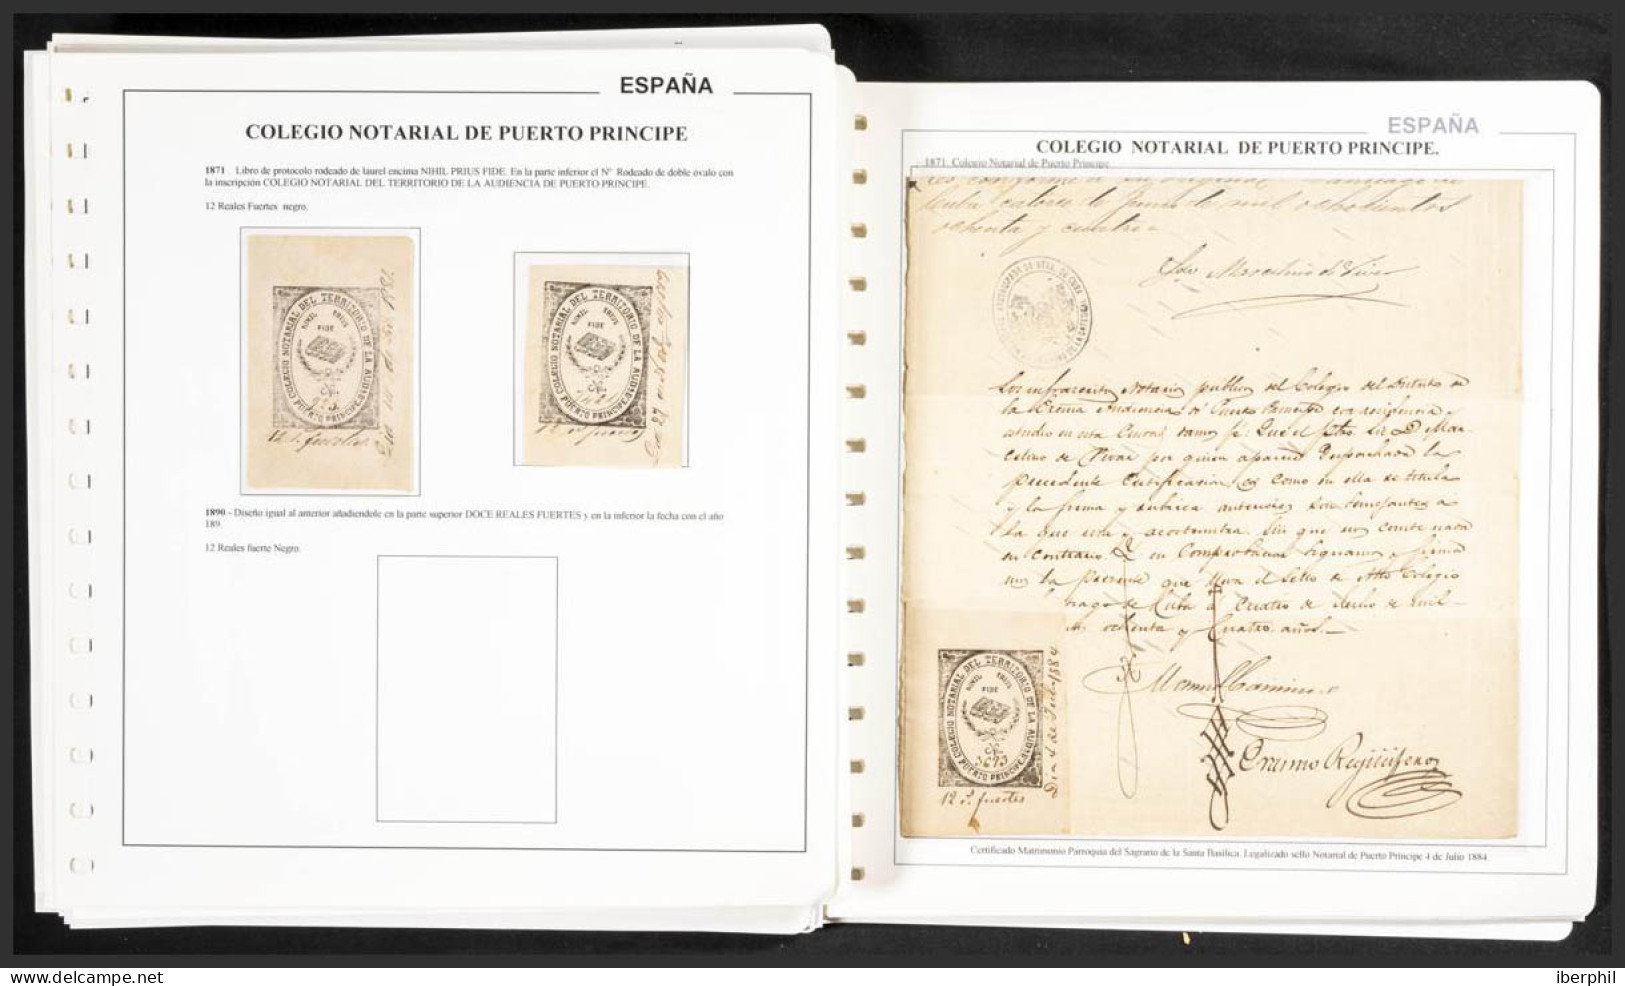 ESPAÑA
COLEGIO NOTARIAL DE PUERTO PRINCIPE
1871 Libro de protocolo rodeado de laurel encima NIHIL PRIUS FIDE. En la parte inferior el Nº Rodeado de doble óvalo con
la inscripción COLEGIO NOTARIAL DEL TERRITORIO DE LA AUDIENCIA DE PUERTO PRINCIPE.
12 Reales Fuertes negro.
COLEGIO NOTARIAL DEL TERRITORIO DE LA AUDª
DE PUERTO PRINCIPE
NIHIL PRIUS
FIDE
COLEGIO NOTARIAL DEL TERRITORIO DE LA AUDª
DE PUERTO PRINCIPE
NIHIL PRIUS
FIDE
1890 - Diseño igual al anterior añadiendole en la parte superior DOCE REALES FUERTES y en la inferior la fecha con el año
189.
12 Reales fuerte Negro.
ESPAÑA
COLEGIO NOTARIAL DE PUERTO PRINCIPE.
1871. Colegio Notarial de Puerto Principe
Cuba catorce de Junio de mil ochocientos
ochenta y cuatro =
Los infrascritos Notarios publicos del Colegio del Distrito de
la Exma Audiencia de Puerto Principe con residencia y
estudio en esta Ciudad damos fe: Que el Pbro. Sr. D. Mar-
celino de Vivar por quien aparece despachada la
precedente Certificacion, es como en ella se titula
y la firma y rubrica anteriores son semejantes a
la que usa y acostumbra, sin que nos conste nada
en contrario. Y en comprobacion signamos y firma
mos la presente que lleva el Sello de dho Colegio
tiago de Cuba á cuatro de Julio de mil
ochenta y cuatro años.
COLEGIO NOTARIAL DEL TERRITORIO DE LA AUDª
DE PUERTO PRINCIPE
NIHIL PRIUS
FIDE
3693
12 rs. fuertes
Dia 4 de Julio 1884
Certificado Matrimonio Parroquia del Sagrario de la Santa Basilica. Legalizado sello Notarial de Puerto Principe 4 de Julio 1884
www.delcampe.net
iberphil